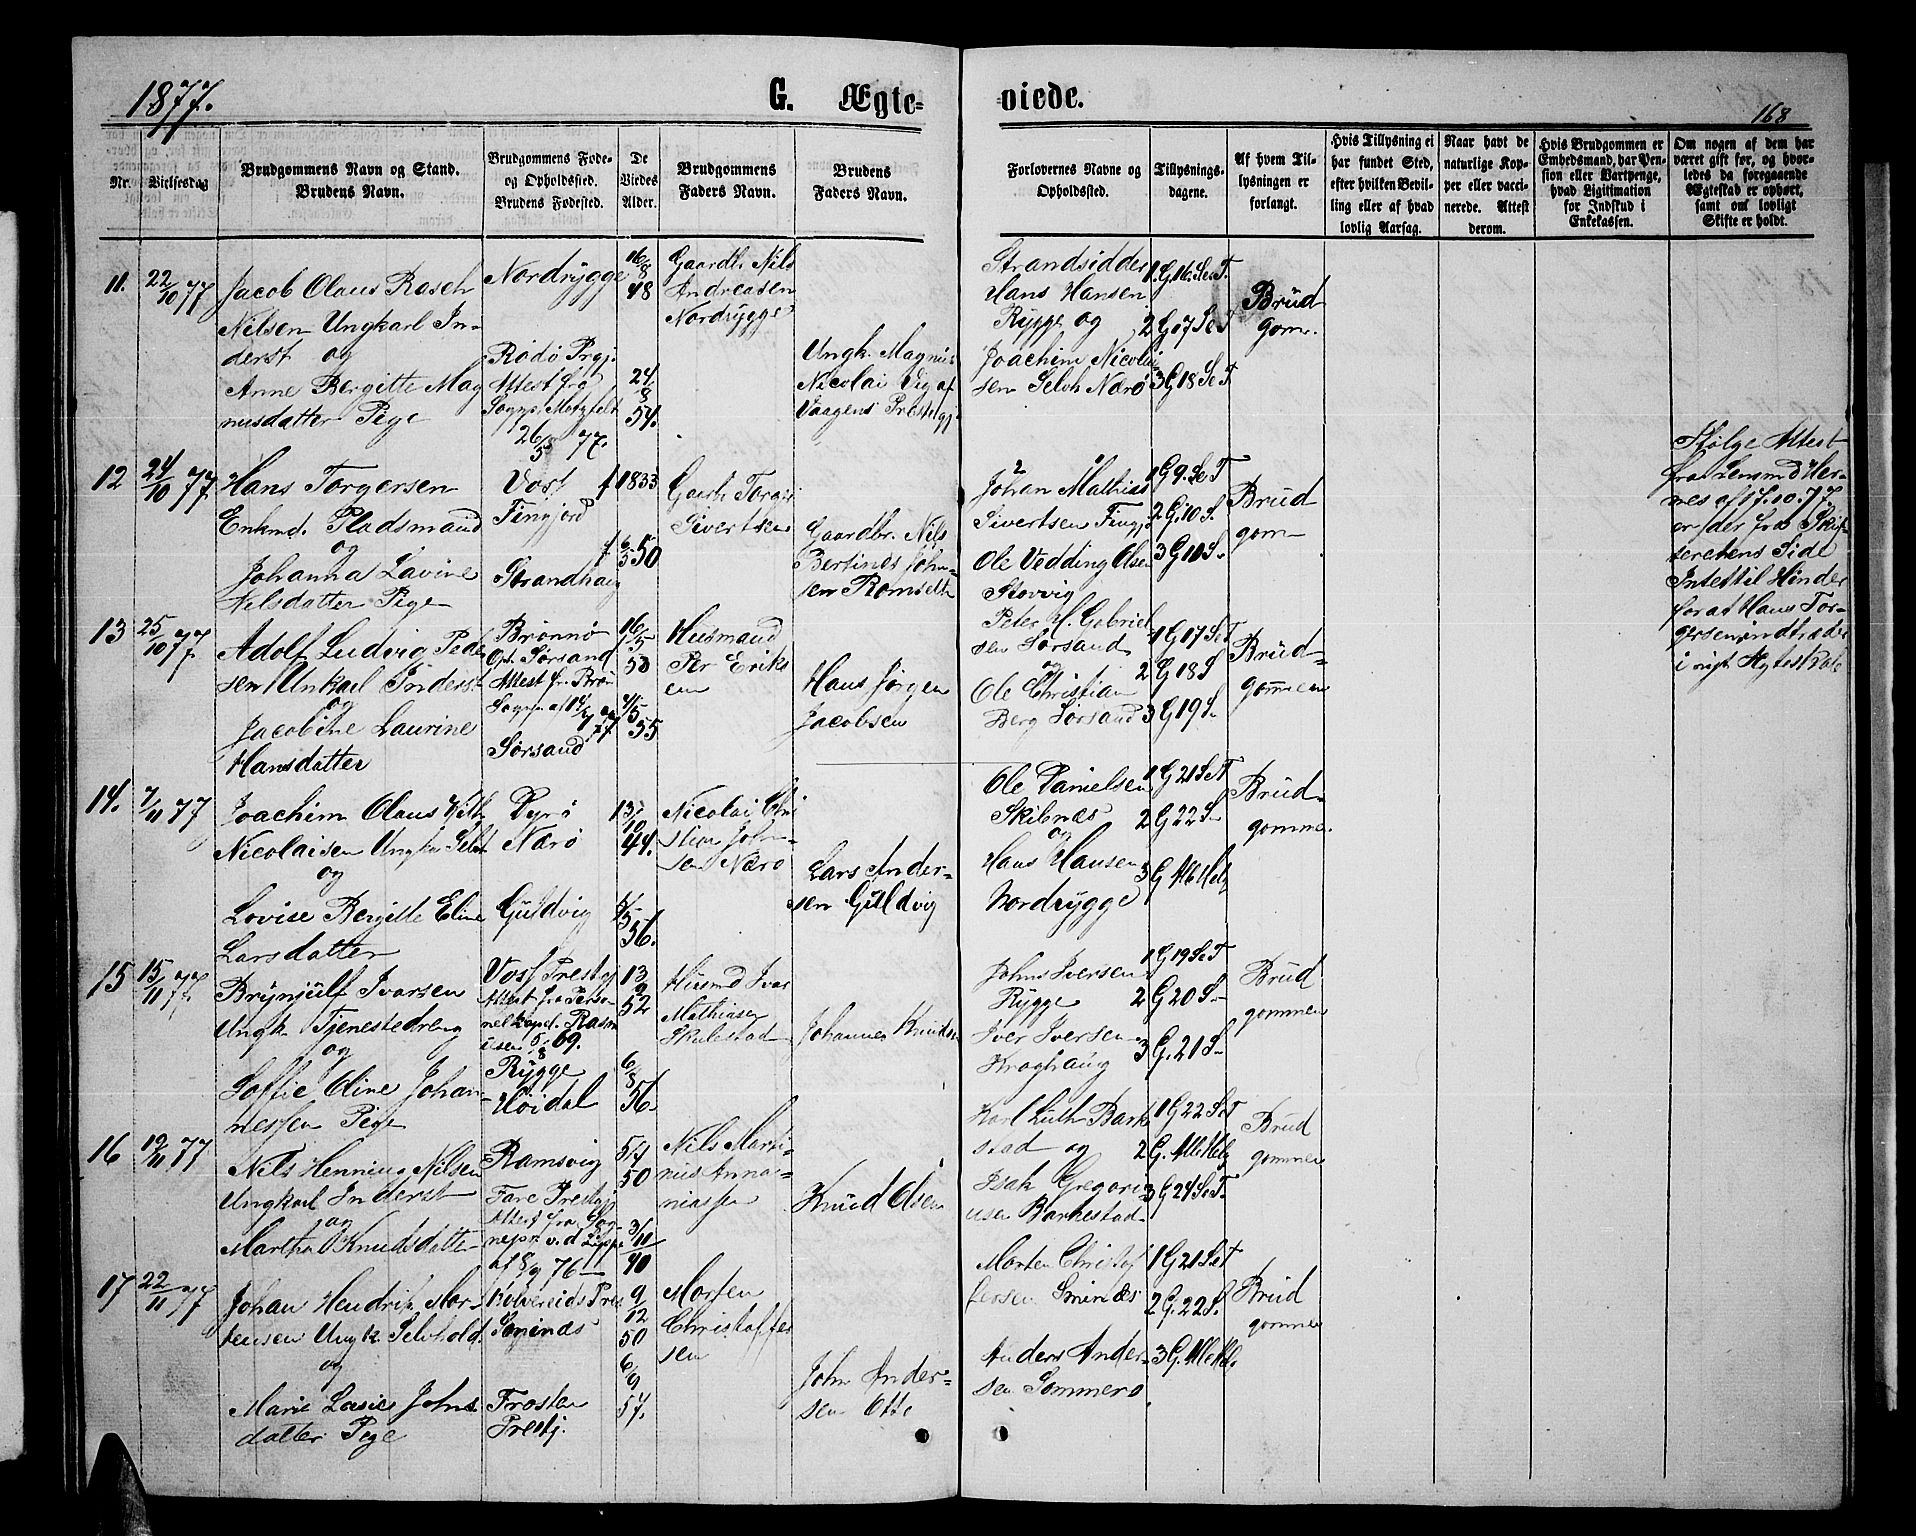 1877.
G. Ægte-
viede.
168
Nr.
Vielsesdag
Brudgommens Navn og Stand.
Brudens Navn.
Brudgommens Føde-
og Opholdssted.
Brudens Fødested.
De
Viedes
Alder.
Brudgommens
Faders Navn.
Brudens
Faders Navn.
Forlovernes Navne og
Opholdssted.
Tillysnings-
dagene.
Af hvem Til-
lysningen er
forlangt.
Hvis Tillysning ei
har fundet Sted,
efter hvilken Bevil-
ling eller af hvad
lovlig Aarsag.
Naar havt de
naturlige Kop-
per eller vacci-
nerede. Attest
derom.
Hvis Brudgommen er
Embedsmand, har Pen-
sion eller Vartpenge,
hvad Legitimation
for Indskud i
Enkekassen.
Om nogen af dem har
været gift før, og hvor-
ledes da foregaaende
Ægteskab er ophørt,
samt om lovligt
Skifte er holdt.
11.
22/10 77
Jacob Olaus Rasch
Nilsen Ungkarl In-
derst og
Anne Bergitte Mag
nusdatter Pige
Nordrygge
Rødø Prgj.
Attest fra
Sogpr Metzfelt
26/5 77.
16/8
48
24/8
54.
Gaardbr. Nils
Andreasen
Nordrygge
Ungk. Magnus
Nicolai Sig af
Vaagens Prestegj
Strandsidder
Hans Hansen
Rygge og
Joachim Nicolai
sen Selvh Narø
1. G 16. S e T.
2 G 17 S e T
3 G 18 S e T
Brud
gom.
12
24/10 77
Hans Torgersen
Enkmd. Pladsmand
og
Johanna Lavine
Nilsdatter Pige
Vosf
Finfjord
Strandhaug
f 1833
f 6/5 50
Gaardbr Torger
Sivertsen
Gaardbr. Nils
Bertinus John-
sen Romseth
Johan Mathias
Sivertsen
Ole Vedding Olsen
Storvig
1 G 9. S e T
2 G. 10 S.
3 G 11 S.
Brud
gom
Ifølge Attest
fra Lensmd Her-
nes af 17.10.77
er der fra Skif
terettens Side
Intet til Hinder
for at Hans Tor-
gersen indtræder
i nyt Ægteskab
13
25/10 77
Adolf Ludvig Peder
sen Unkarl Inderst
og
Jacobine Laurine
Hansdatter
Brønnø
Op. Sørsand
Attest fr. Brøn
Sørsand
16/5
50
4/5
55
Husmand
Per Eriks
en
Hans Jørgen
Jacobsen
Peter H. Gabriel
sen Sørsand
og
Ole Christian
Berg Sørsand
1 G 17 S e T
2 G 18 S
3 G 19 S.
Brud-
gommen
14.
7/11 77
Joachim Olaus Vilh
Nicolaisen Ungk. Selvh
og
Lovise Bergitte Eline
Larsdatter
Narø
Guldvig
13/10
44.
56.
Nicolai Chri
stian John-
sen Narø
Lars Ander-
sen Guldvig
Ole Danielsen
Skilnæs
og
Hans Hansen
Nordrygge
1 G 21 S e T
2 G 22 S
3 G Alle Helg
Brud-
gomme.
15
15/11 77
Brynjulf Ivarsen
Ungk. Tjenestedreng
og
Soffie Oline Johan
nessen Pige
Vosf Prestgj
Attest fra Perso
nel Kapel. Rasm
Rygge
Høidal
13/9
52
6/8
56.
Husmd Ivar
Mathiasen
Skulestad
Johannes Knudsen
Johns Iversen
Rygge
Iver Iversen
Kraghaug
1 G 19 S e T
2 G 20 S
3 G. 21 S
Brud
gommen
16
19/11 77
Nils Henning Nilsen
Ungkarl Inderst
og
Martha Knudsdatter
Ramsvig
Fare Prestgj
Attest fra Sog-
nepr. v.d. Lippe
af 8/9 76
5/7
50
3/11
40
Nils Marti-
nus Anna-
niassen
Knud Olsen
Karl Luth Bark
stad og
Isak Gregori
usen Barkestad
1 G 22 S e T
2 G. Alle Helg
3 G 24 S e T
Brud
gommen
17
22/11 77
Johan Hendrik Mor-
tensen Ungk. Selvhold.
og
Marie Johns
datter Pige
Kolvereids Pres
Frosten
Prestj.
9/12
50
6/9
57.
Morten
Christoffer
sen
John Ander-
sen Otte
Morten Christof
fersen
Anders Ander-
sen Sommerø
1 G 21 S e T
2 G. 22 S.
3 G. Alle Hel.
Brud
gommen